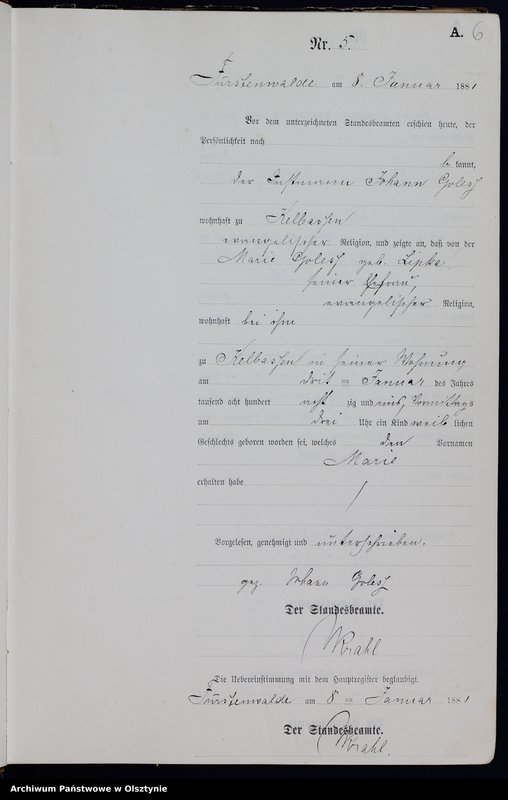 A. 6
Nr. 5.
Fürstenwalde am 8. Januar 1881
Vor dem unterzeichneten Standesbeamten erschien heute, der
Persönlichkeit nach
be kannt,
der Instmann Johann Golesz
wohnhaft zu Kelbassen
evangelischer Religion, und zeigte an, daß von der
Marie Golesz geb. Lipka,
seiner Ehefrau,
evangelischer Religion,
wohnhaft bei ihm
zu Kelbassen in seiner Wohnung
am drit ten Januar des Jahres
tausend acht hundert acht zig und eins, Vormittags
um drei Uhr ein Kind weib lichen
Geschlechts geboren worden sei, welches den Vornamen
Marie
erhalten habe
Vorgelesen, genehmigt und unterschrieben.
gez. Johann Golesz
Der Standesbeamte.
Krahl
Die Uebereinstimmung mit dem Hauptregister beglaubigt.
Fürstenwalde am 8 ten Januar 1881
Der Standesbeamte.
Krahl.
Archiwum Państwowe w Olsztynie